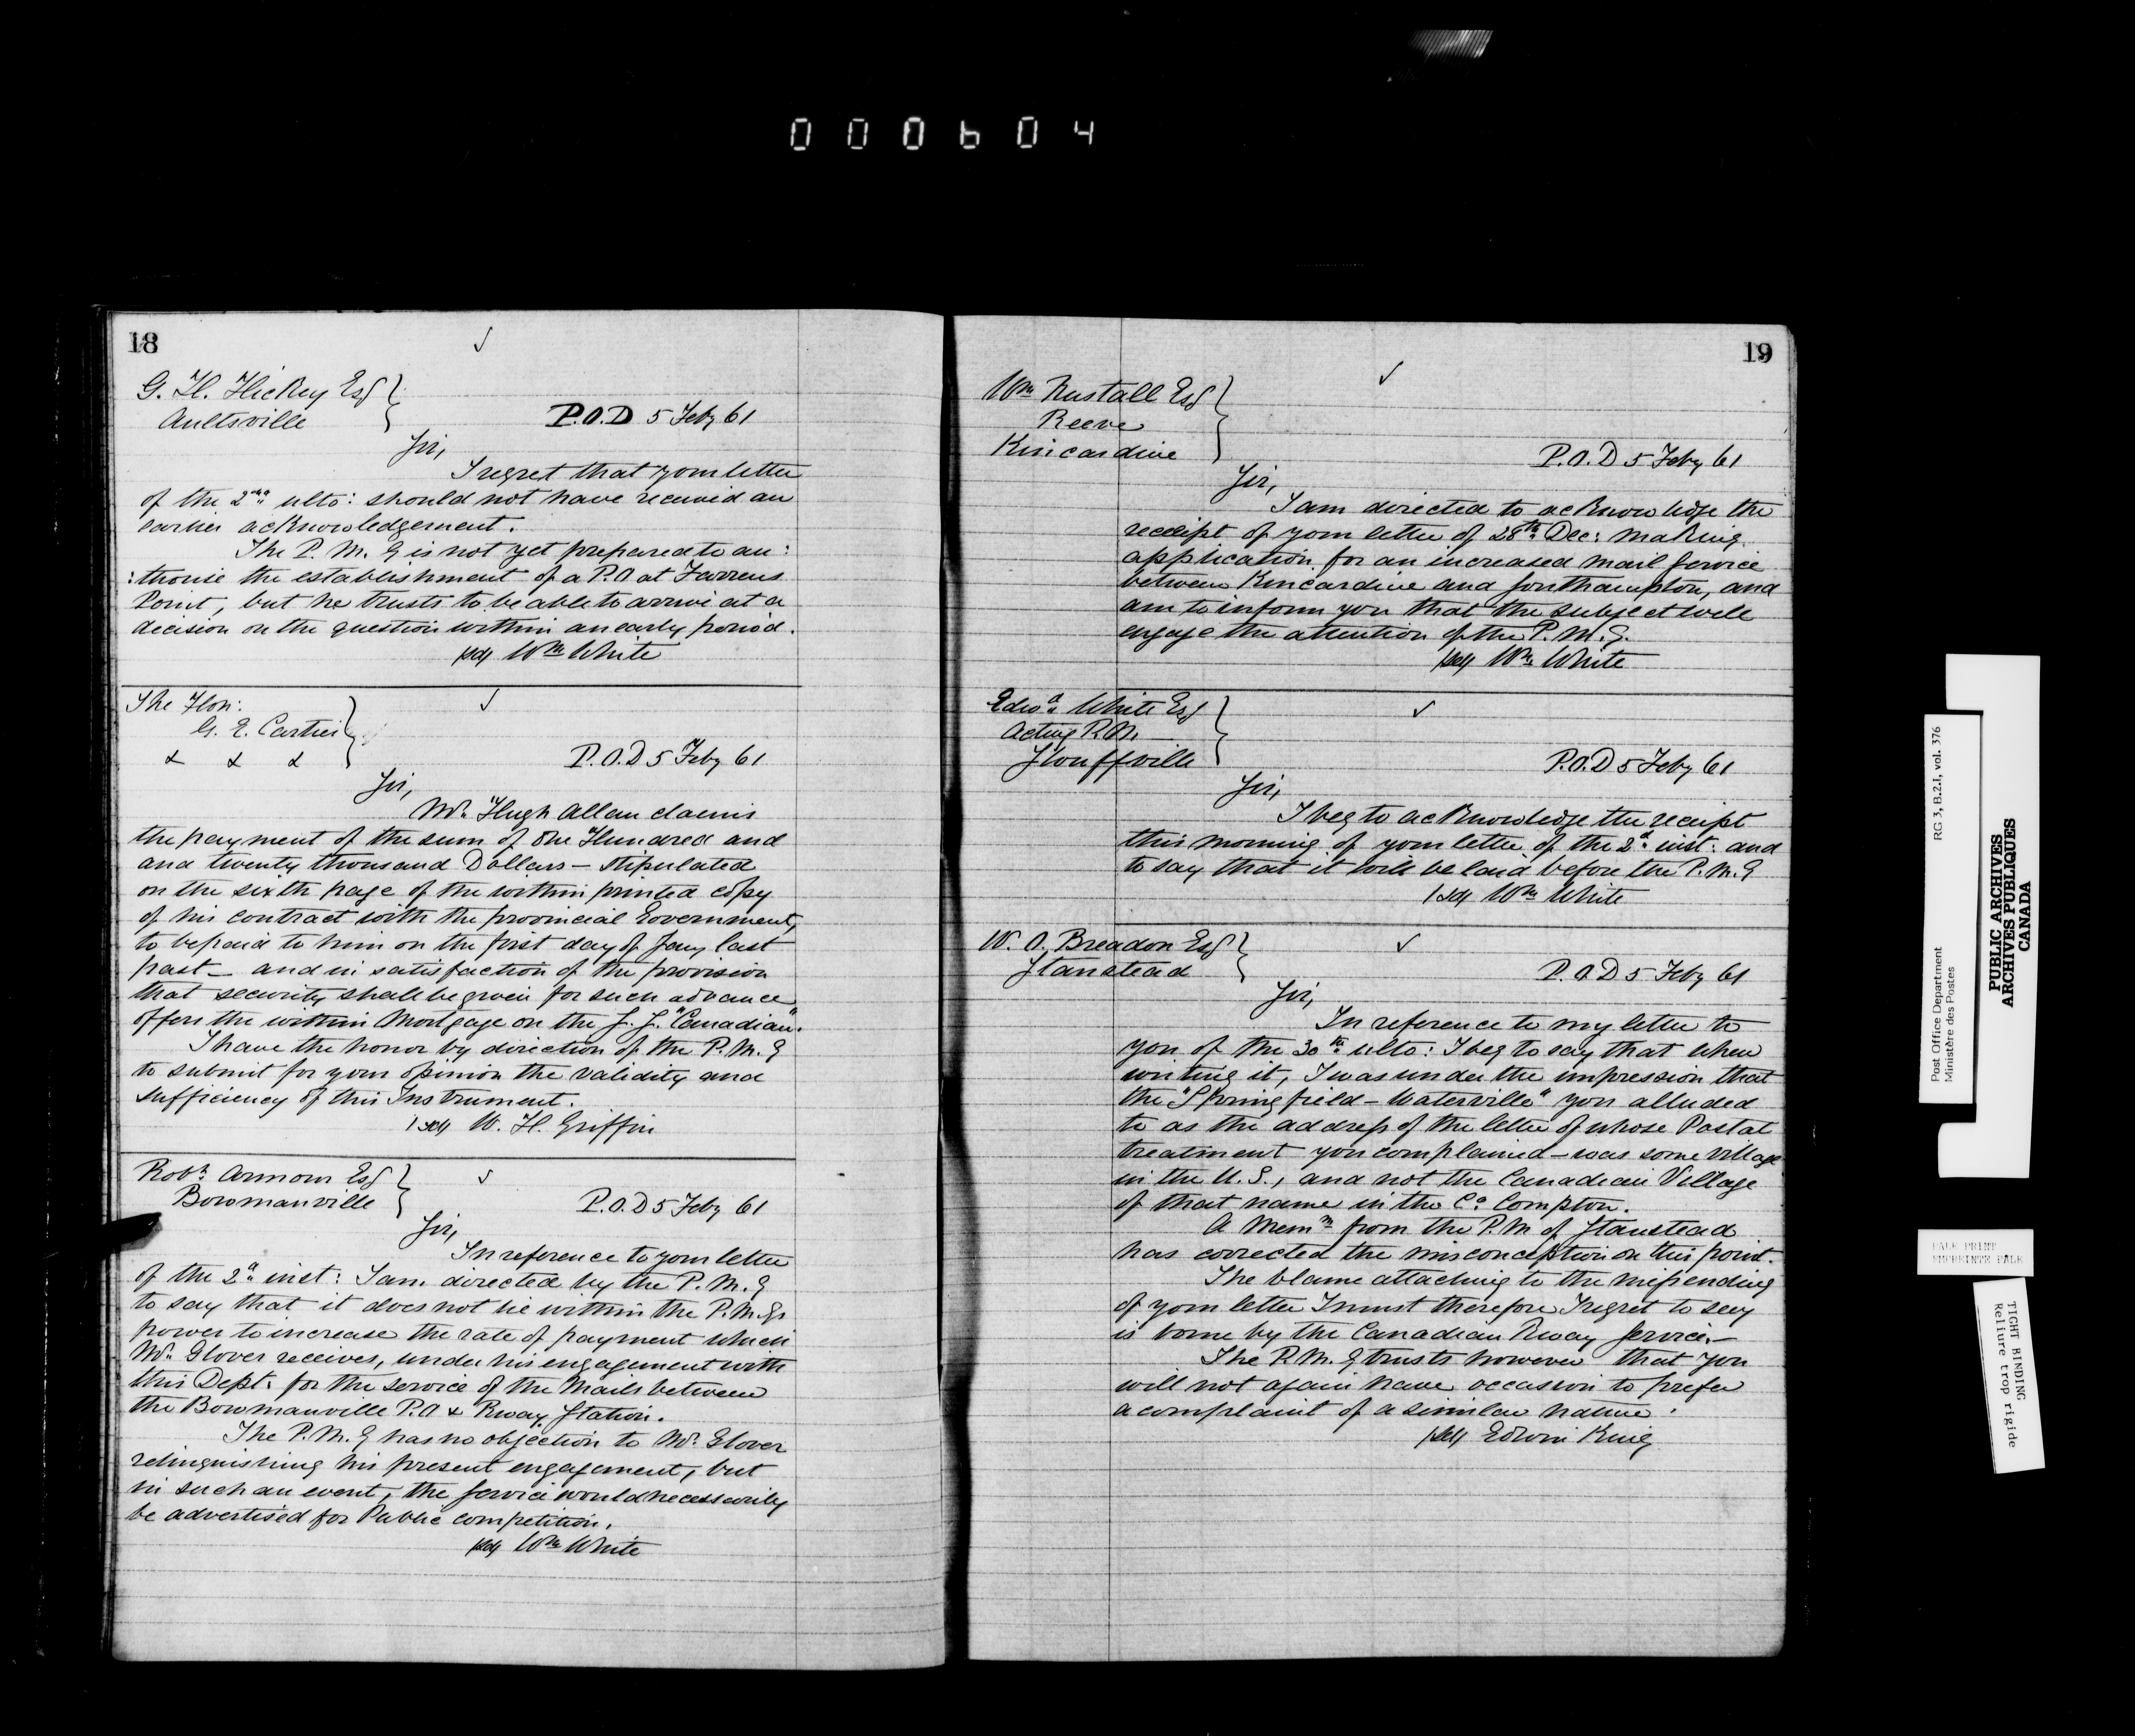 000604
18
G. H. Hickey Esq
Aultsville
P.O.D 5 Feby 61
Sir,
I regret that your letter
of the 2nd ulto: should not have received an
earlier acknowledgement.
The P. M. G is not yet prepared to au:
:thorise the establishment of a P.O at Farrens
Point, but he trusts to be able to arrive at a
decision on the question within an early period.
/sd/ Wm White
The Hon:
G. E. Cartier
& & &
P.O.D 5 Feby 61
Sir,
Mr. Hugh Allan claims
the payment of the sum of One Hundred and
and twenty thousand Dollars – stipulated
on the sixth page of the within printed copy
of his contract with the provincial Government,
to be paid to him on the first day of Jany last
past – and in satisfaction of the provision
that security shall be given for such advance
offers the within Mortgage on the S. S. "Canadian".
I have the honor by direction of the P. M. G
to submit for your opinion the validity and
sufficiency of this Instrument.
/sd/ W. H. Griffin
Robt. Armour Esq
Bowmanville
P.O.D 5 Feby 61
Sir,
In reference to your letter
of the 2d inst: I am directed by the P. M. G
to say that it does not lie within the P.M.Gs
power to increase the rate of payment which
Mr. Glover receives, under his engagement with
this Dept: for the service of the Mails between
the Bowmanville P.O & Rway Station.
The P. M. G has no objection to Mr. Glover
relinquishing his present engagement, but
in such an event, the service would necessarily
be advertised for Public competition.
/sd/ Wm White
19
Wm Rastall Esq
Reeve
Kincardine
P.O.D 5 Feby 61
Sir,
I am directed to acknowledge the
receipt of your letter of 28th Dec: making
application for an increased mail service
between Kincardine and Southampton, and
am to inform you that the subject will
engage the attention of the P. M. G.
/sd/ Wm White
Edwd. White Esq
Acting P.M.
Stouffville
P.O.D 5 Feby 61
Sir,
I beg to acknowledge the receipt
this morning of your letter of the 2d inst: and
to say that it will be laid before the P. M. G
/sd/ Wm White
W. O. Breadon Esq
Stanstead
P.O.D 5 Feby 61
Sir,
In reference to my letter to
you of the 30th ulto: I beg to say that when
writing it, I was under the impression that
the "Springfield – Waterville" you alluded
to as the address of the letter of whose Postal
treatment you complained – was some village
in the U. S., and not the Canadian Village
of that name in the Co. Compton.
A Memm from the P.M of Stanstead
has corrected the misconception on this point.
The blame attaching to the missending
of your letter I must therefore I regret to say
is borne by the Canadian Rway Service. –
The P. M. G trusts however that you
will not again have occasion to prefer
a complaint of a similar nature.
/sd/ Edwin King
Post Office Department
Ministère des Postes
RG 3, B.2.I, vol. 376
PUBLIC ARCHIVES
ARCHIVES PUBLIQUES
CANADA
PALE PRINT
EMPREINTE PALE
TIGHT BINDING
Reliure trop rigide